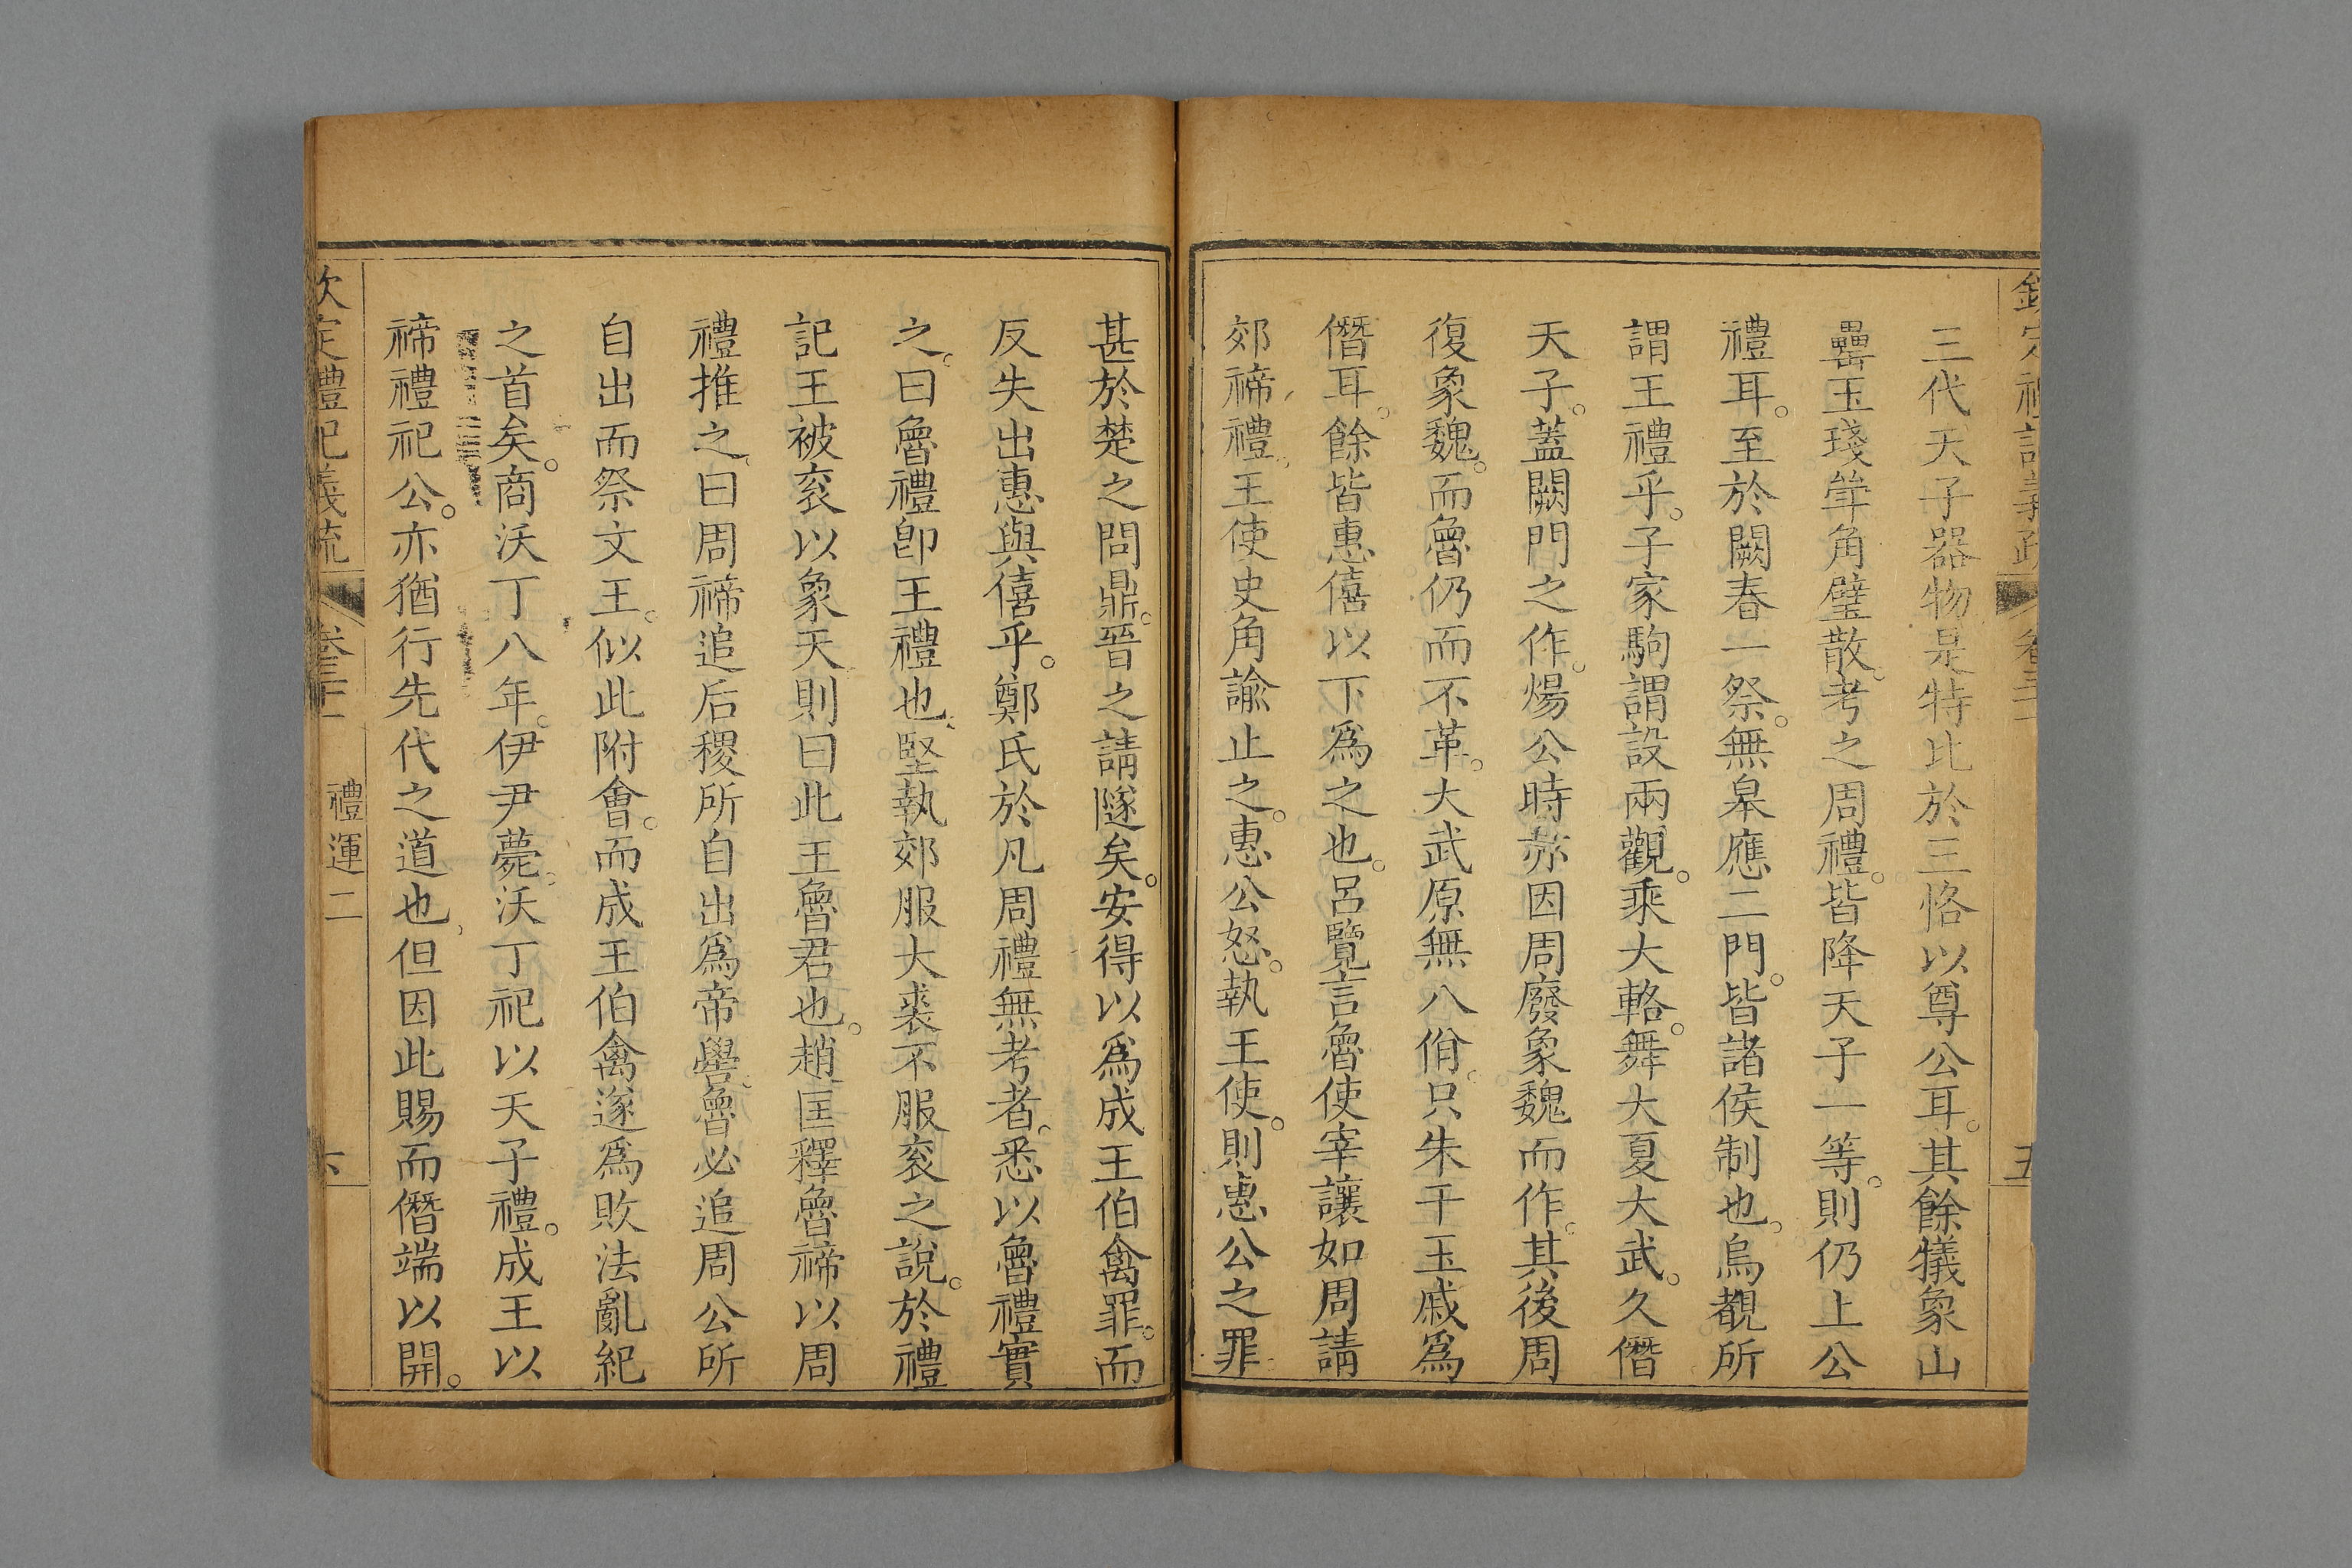 欽定禮記義疏 卷三十一 五
三代天子器物是特比於三恪以尊公耳。其餘犧象山
罍玉琖斝角璧散。考之周禮。皆降天子一等。則仍上公
禮耳。至於闕春一祭。無皋應二門。皆諸侯制也。烏覩所
謂王禮乎。子家駒謂設兩觀。乘大輅。舞大夏大武。久僭
天子。蓋闕門之作。煬公時茆因周廢象魏而作。其後周
復象魏。而魯仍而不革。大武原無八佾。只朱干玉戚爲
僭耳。餘皆惠僖以下爲之也。呂覽言魯使宰讓如周請
郊禘禮。王使史角諭止之。惠公怒。執王使。則惠公之罪
甚於楚之問鼎。晉之請隧矣。安得以爲成王伯禽罪。而
反失出惠與僖乎。鄭氏於凡周禮無考者。悉以魯禮實
之。曰魯禮卽王禮也、堅執郊服大裘不服衮之說。於禮
記王被衮以象天則曰此王魯君也。趙匡釋魯禘以周
禮推之、曰周禘追后稷所自出爲帝嚳、魯必追周公所
自出而祭文王。似此附會。而成王伯禽遂爲敗法亂紀
之首矣。商沃丁八年。伊尹薨。沃丁祀以天子禮。成王以
禘禮祀公。亦猶行先代之道也、但因此賜而僭端以開。
欽定禮記義疏 卷三十一 禮運二 六